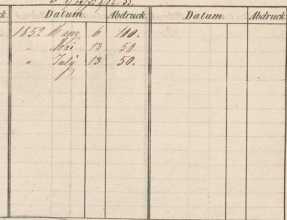 Datum. Abdruck. Datum. Abdruck.
1852 6 100.
" Mai 13 50
" July 13 50.